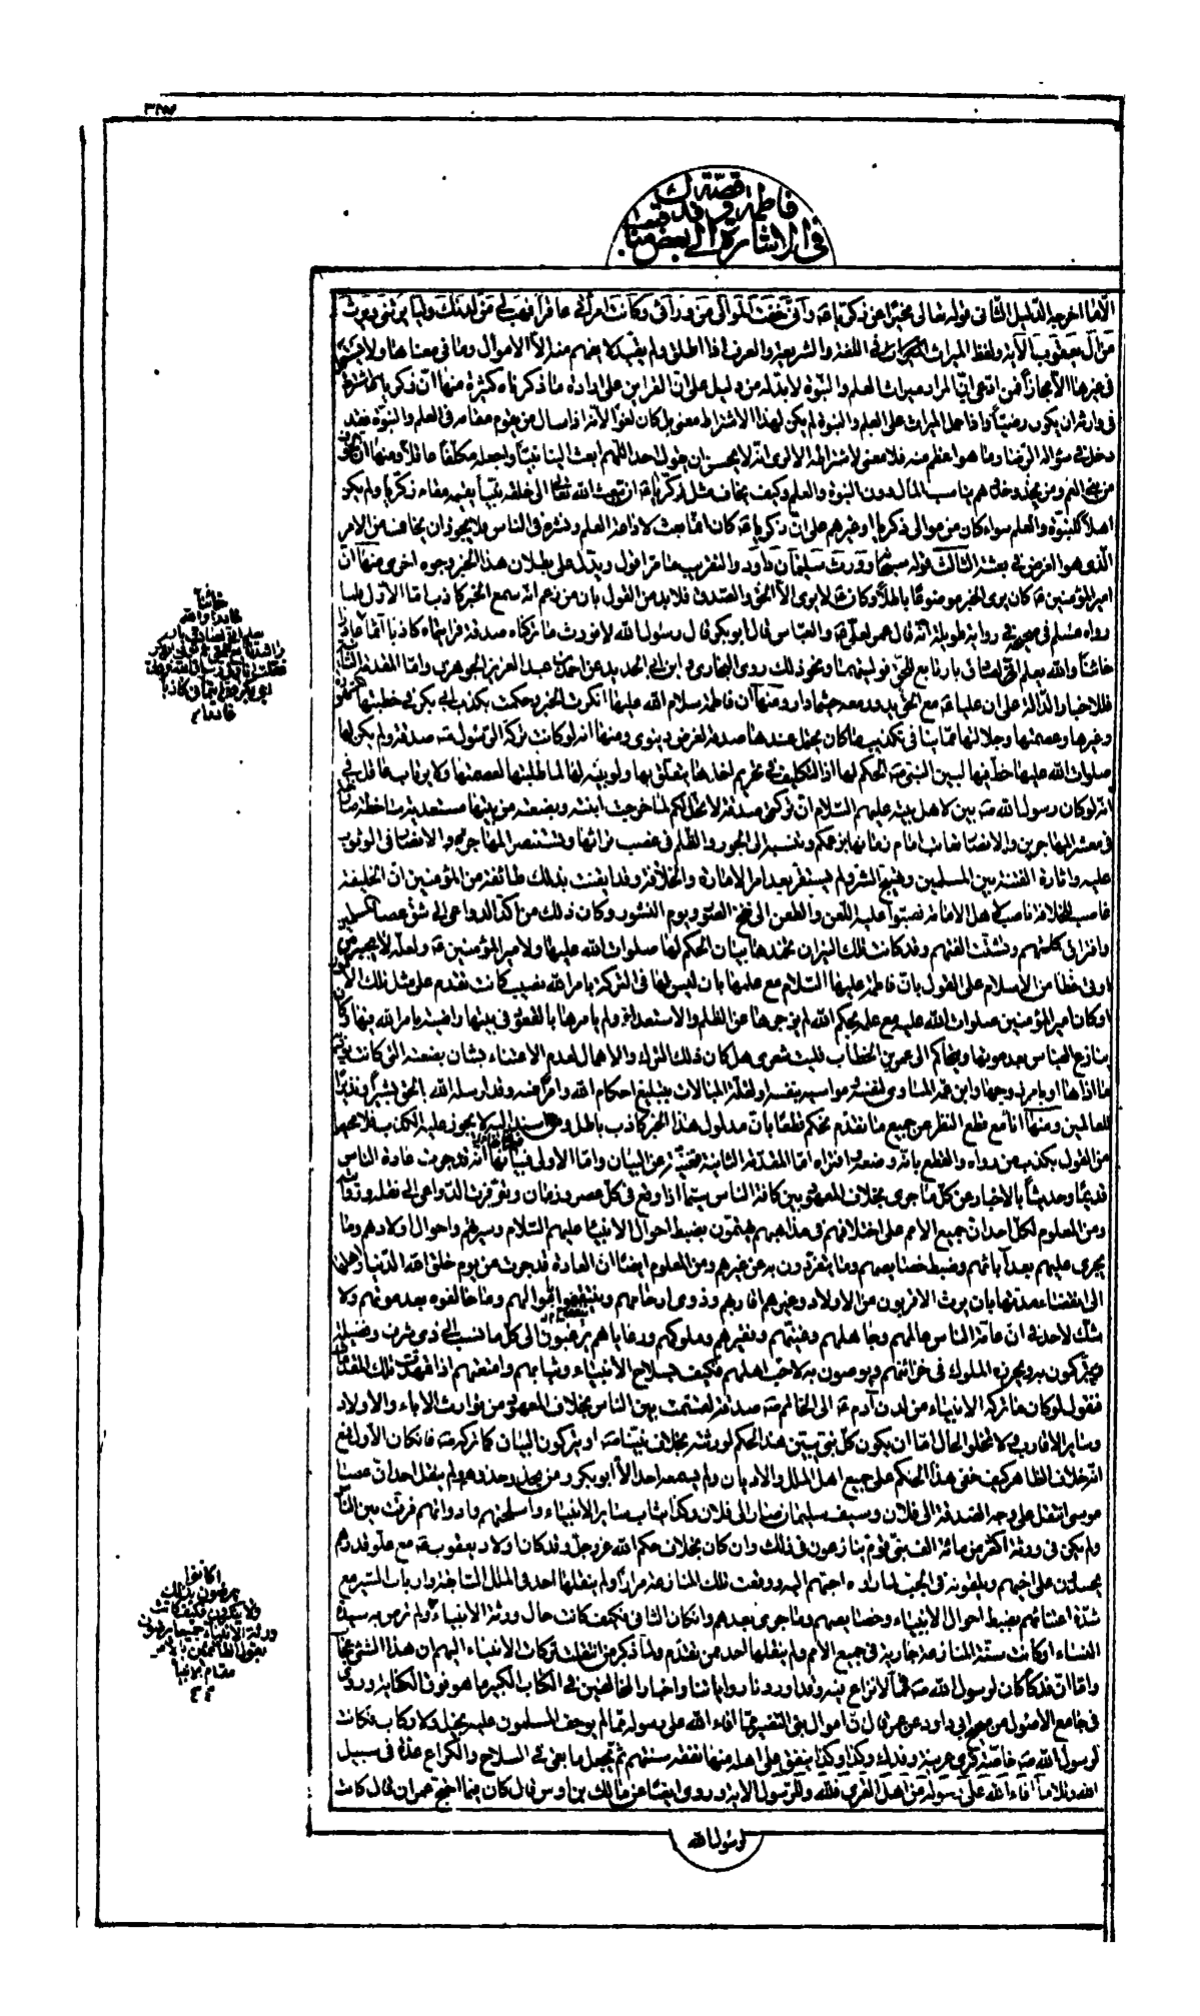 ٣٨٧
قصّة فدك
فاطمة في
في الاشارة الى بعض مناقب
الا ما اخرجه الدّليل الثّاني قوله تعالى مخبرا عن زكريّا وانّي خفت الموالي من ورائي وكانت امرأتي عاقرا فهب لي من لدنك وليّا يرثني ويرث
من آل يعقوب الآية ولفظ الميراث في اللغة والشريعة والعرف اذا اطلق ولم يقيّد لا يفهم منه الّا الاموال وما في معناها ولا يستعمل
في غيرها الّا مجازاً فمن ادّعى انّ المراد ميراث العلم والنبوّة لا بدّ له من دليل على انّ القراين على ارادة ما ذكرناه كثيرة منها انّ زكريا اشترط
في وارثه ان يكون رضيّاً واذا حمل الميراث على العلم والنبوّة لم يكن لهذا الاشتراط معنى بل كان لغواً لانّه اذا سال من يقوم مقامه في العلم والنبوّة فقد
دخل في سؤاله الرّضا وما هو اعظم منه فلا معنى لاشتراطه الا ترى انّه لا يحسن ان يقول احد اللّهم ابعث الينا نبيّاً واجعله مكلّفاً عاقلاً ومنها انّ الخوف
من بني العم ومن يحذو حذوهم يناسب المال دون النبوّة والعلم وكيف يخاف مثل زكريّا من ان يبعث الله تعالى الى خلقه نبيّاً يقيمه مقام زكريا ولم يكن
اهلاً للنبوّة والعلم سواء كان من موالي زكريا او غيرهم على انّ زكريّا كان انّما بعث لاذاعة العلم ونشره في الناس فلا يجوز ان يخاف من الامر
الّذي هو الغرض في بعثته الثّالث قوله سبحانه وورث سليمان داود والتقريب ما مرّ اقول ويدلّ على بطلان هذا الخبر وجوه اخرى منها انّ
امير المؤمنين كان يرى الخبر موضوعًا باطلاً وكان لا يرى الّا الحقّ والصّدق فلا بدّ من القول بان من زعم انّه سمع الخبر كاذب امّا الاوّل فلما
رواه مسلم في صحيحه في رواية طويلة انّه قال عمر لعليّ والعبّاس قال ابو بكر قال رسول الله لا نورث ما تركناه صدقة فرايتماه كاذبا آثما غادرا
خائنًا والله يعلم انّه لصادق بارّ تابع للحقّ ونحو ذلك روى البخاري وابن ابي الحديد عن احمد بن عبد العزيز الجوهري وامّا المقدّمة الثّانية
فللاخبار الدّالة على ان عليّا مع الحقّ يدور معه حيثما دار ومنها انّ فاطمة سلام الله عليها انكرت الخبر وحكمت بكذب ابي بكر في خطبتها
وغيرها وعصمتها وجلالتها ممّا ينافي تكذيب ما كان يحتمل عندها صدقه لغرض دنيوي ومنها انّه لو كانت تركة الرّسول صدقة ولم يكن لها
صلوات الله عليها حظّ فيها لبيّن النبيّ الحكم لها اذ التكليف في تحريم اخذها يتعلّق بها ولو بيّنه لها لما طلبتها لعصمتها ولا يرتاب عاقل في
انّه لو كان رسول الله بيّن لاهل بيته عليهم السّلام انّ تركتي صدقة لا تحلّ لكم لما خرجت ابنته وبضعته من بيتها مستعدية ساخطة
في معشر المهاجرين والانصار تعاتب امام زمانها بزعمكم وتنسبه الى الجور والظّلم في غصب تراثها وتستنصر المهاجرة والانصار في الوثوب
عليه واثارة الفتنة بين المسلمين وتهييج الشّر ولم يستقرّ بعد امر الامارة والخلافة وقد ايقنت بذلك طائفة من المؤمنين انّ الخليفة
غاصب للخلافة ناصب لاهل الامامة فصبّوا عليه اللّعن والطّعن الى نفخ الصّور ويوم النّشور وكان ذلك من آكد الدّواعي الى شقّ عصا المسلمين
وافتراق كلمتهم وتشتّت الفتهم وقد كانت تلك النيران يخمدها بيان الحكم لها صلوات الله عليها ولامير المؤمنين ولعلّه لا يجسر من
اوتي حظّا من الاسلام على القول بانّ فاطمة عليها السّلام مع علمها بان ليس لها في التركة بامر الله نصيب كانت تقدم على مثل تلك الامور
او كان امير المؤمنين صلوات الله عليه مع علمه بحكم الله لم يزجرها عن التظلّم والاستعداء ولم يامرها بالقعود في بيتها راضية بامر الله فيها وكان
ينازع العباس بعد موتها ويتحاكم الى عمر بن الخطاب فليت شعري هل كان ذلك الترك والاهمال لعدم الاعتناء بشان بضعته التي كانت يؤذيه
ما آذاها او بامر زوجها وابن عمّه المساوي لنفسه ومواسيه بنفسه او لقلّة المبالات بتبليغ احكام الله وامر امّته وقد ارسله الله بالحقّ بشيراً ونذيراً
للعالمين ومنها انّا مع قطع النظر عن جميع ما تقدّم نحكم قطعًا بانّ مدلول هذا الخبر كاذب باطل ومن اسند اليه لا يجوز عليه الكذب فلا محيص
من القول بكذب من رواه والقطع بانّه وضعه وافتراه امّا المقدّمة الثّانية فغنيّة عن البيان وامّا الاولى فبيانها انّه قد جرت عادة الناس
قديمًا وحديثاً بالاخبار عن كلّ ما جرى بخلاف المعهود بين كافة النّاس سيّما اذا وقع في كلّ عصر وزمان وتوفّرت الدّواعي الى نقله وروايته
ومن المعلوم لكلّ احد انّ جميع الامم على اختلافهم في مذاهبهم يهتمّون بضبط احوال الانبياء عليهم السّلام وسيرتهم واحوال اولادهم وما
يجري عليهم بعد آبائهم وضبط خصائصهم وما يتفرّدون به عن غيرهم ومن المعلوم ايضًا انّ العادة قد جرت من يوم خلق الله الدّنيا واهلها
الى انقضاء مدّتها بان يرث الاقربون من الاولاد وغيرهم اقاربهم وذوي ارحامهم وينتفعوا باموالهم وما خلّفوه بعد موتهم ولا
شكّ لاحد في انّ عامّة النّاس عالمهم وجاهلهم وغنيّهم وفقيرهم وملوكهم ورعاياهم يرغبون الى كلّ ما نسب الى ذي شرف وفضيلة
ويتبرّكون به ويحرزه الملوك في خزائنهم ويوصون به لاحبّ اهلهم فكيف بسلاح الانبياء وثيابهم وامتعتهم اذا تمهّدت تلك المقدّمات
فنقول لو كان ما تركه الانبياء من لدن آدم الى الخاتم صدقة لقسمت بين الناس بخلاف المعهود من توارث الاباء والاولاد
وسائر الاقارب ولا يخلو الحال امّا ان يكون كلّ نبيّ يبيّن هذا الحكم لورثته بخلاف نبيّنا او يتركون البيان كما تركه فان كان الاوّل فمع
انّه خلاف الظاهر كيف خفي هذا الحكم على جميع اهل الملل والاديان ولم يسمعه احد الّا ابو بكر ومن يحذو حذوه ولم ينقل احد انّ عصا
موسى انتقل على وجه الصّدقة الى فلان وسيف سليمان صار الى فلان وكذا ثياب سائر الانبياء واسلحتهم وادواتهم فرّقت بين النّاس
ولم يكن في ورثة اكثر من مائة الف نبيّ قوم ينازعون في ذلك وان كان بخلاف حكم الله عزّ وجلّ وقد كان اولاد يعقوب مع علوّ قدرهم
يحسدون على اخيهم ويلقونه في الجبّ لما راوه احبّهم اليه ووقعت تلك المنازعة مراراً ولم ينقلها احد في الملل السّابقة وارباب السّير مع
شدّة اعتنائهم بضبط احوال الانبياء وخصائصهم وما جرى بعدهم وان كان الثاني فكيف كانت حال ورثة الانبياء ولم ترض به سيّدة
النّساء او كانت سنّة المنازعة جارية في جميع الامم ولم ينقلها احد ممّن تقدّم ولا ذكر من انتقلت تركات الانبياء اليهم ان هذا لشيء عجاب
وامّا انّ فدكاً كان لرسول الله فممّا لا نزاع فيه وقد اوردنا من رواياتنا واخبار المخالفين في الكتاب الكبير ما هو فوق الكفاية وروى
في جامع الاصول من صحيح ابي داود عن عمر قال انّ اموال بني النّضير ممّا افاء الله على رسوله ممّا لم يوجف المسلمون عليه بخيل ولا ركاب فكانت
لرسول الله خاصّة قرى عرينة وفدك وكذا وكذا ينفق على اهله منها نفقة سنتهم ثمّ يجعل ما بقي في السّلاح والكراع عدّة في سبيل
الله وتلا ما افاء الله على رسوله من اهل القرى فللّه وللرّسول الآية وروى ايضًا عن مالك بن اوس قال كان فيما احتجّ عمر ان قال كانت
لرسول الله
خائنًا
غادرا والله
يعلم انّه لصادق بارّ
راشد
ابي بكر
كاذبا
غادرا
يرضون بذلك
فكيف كانت
ورثة الانبياء جميعا يرضون
بقول القائمين بالامر
مقام الانبياء